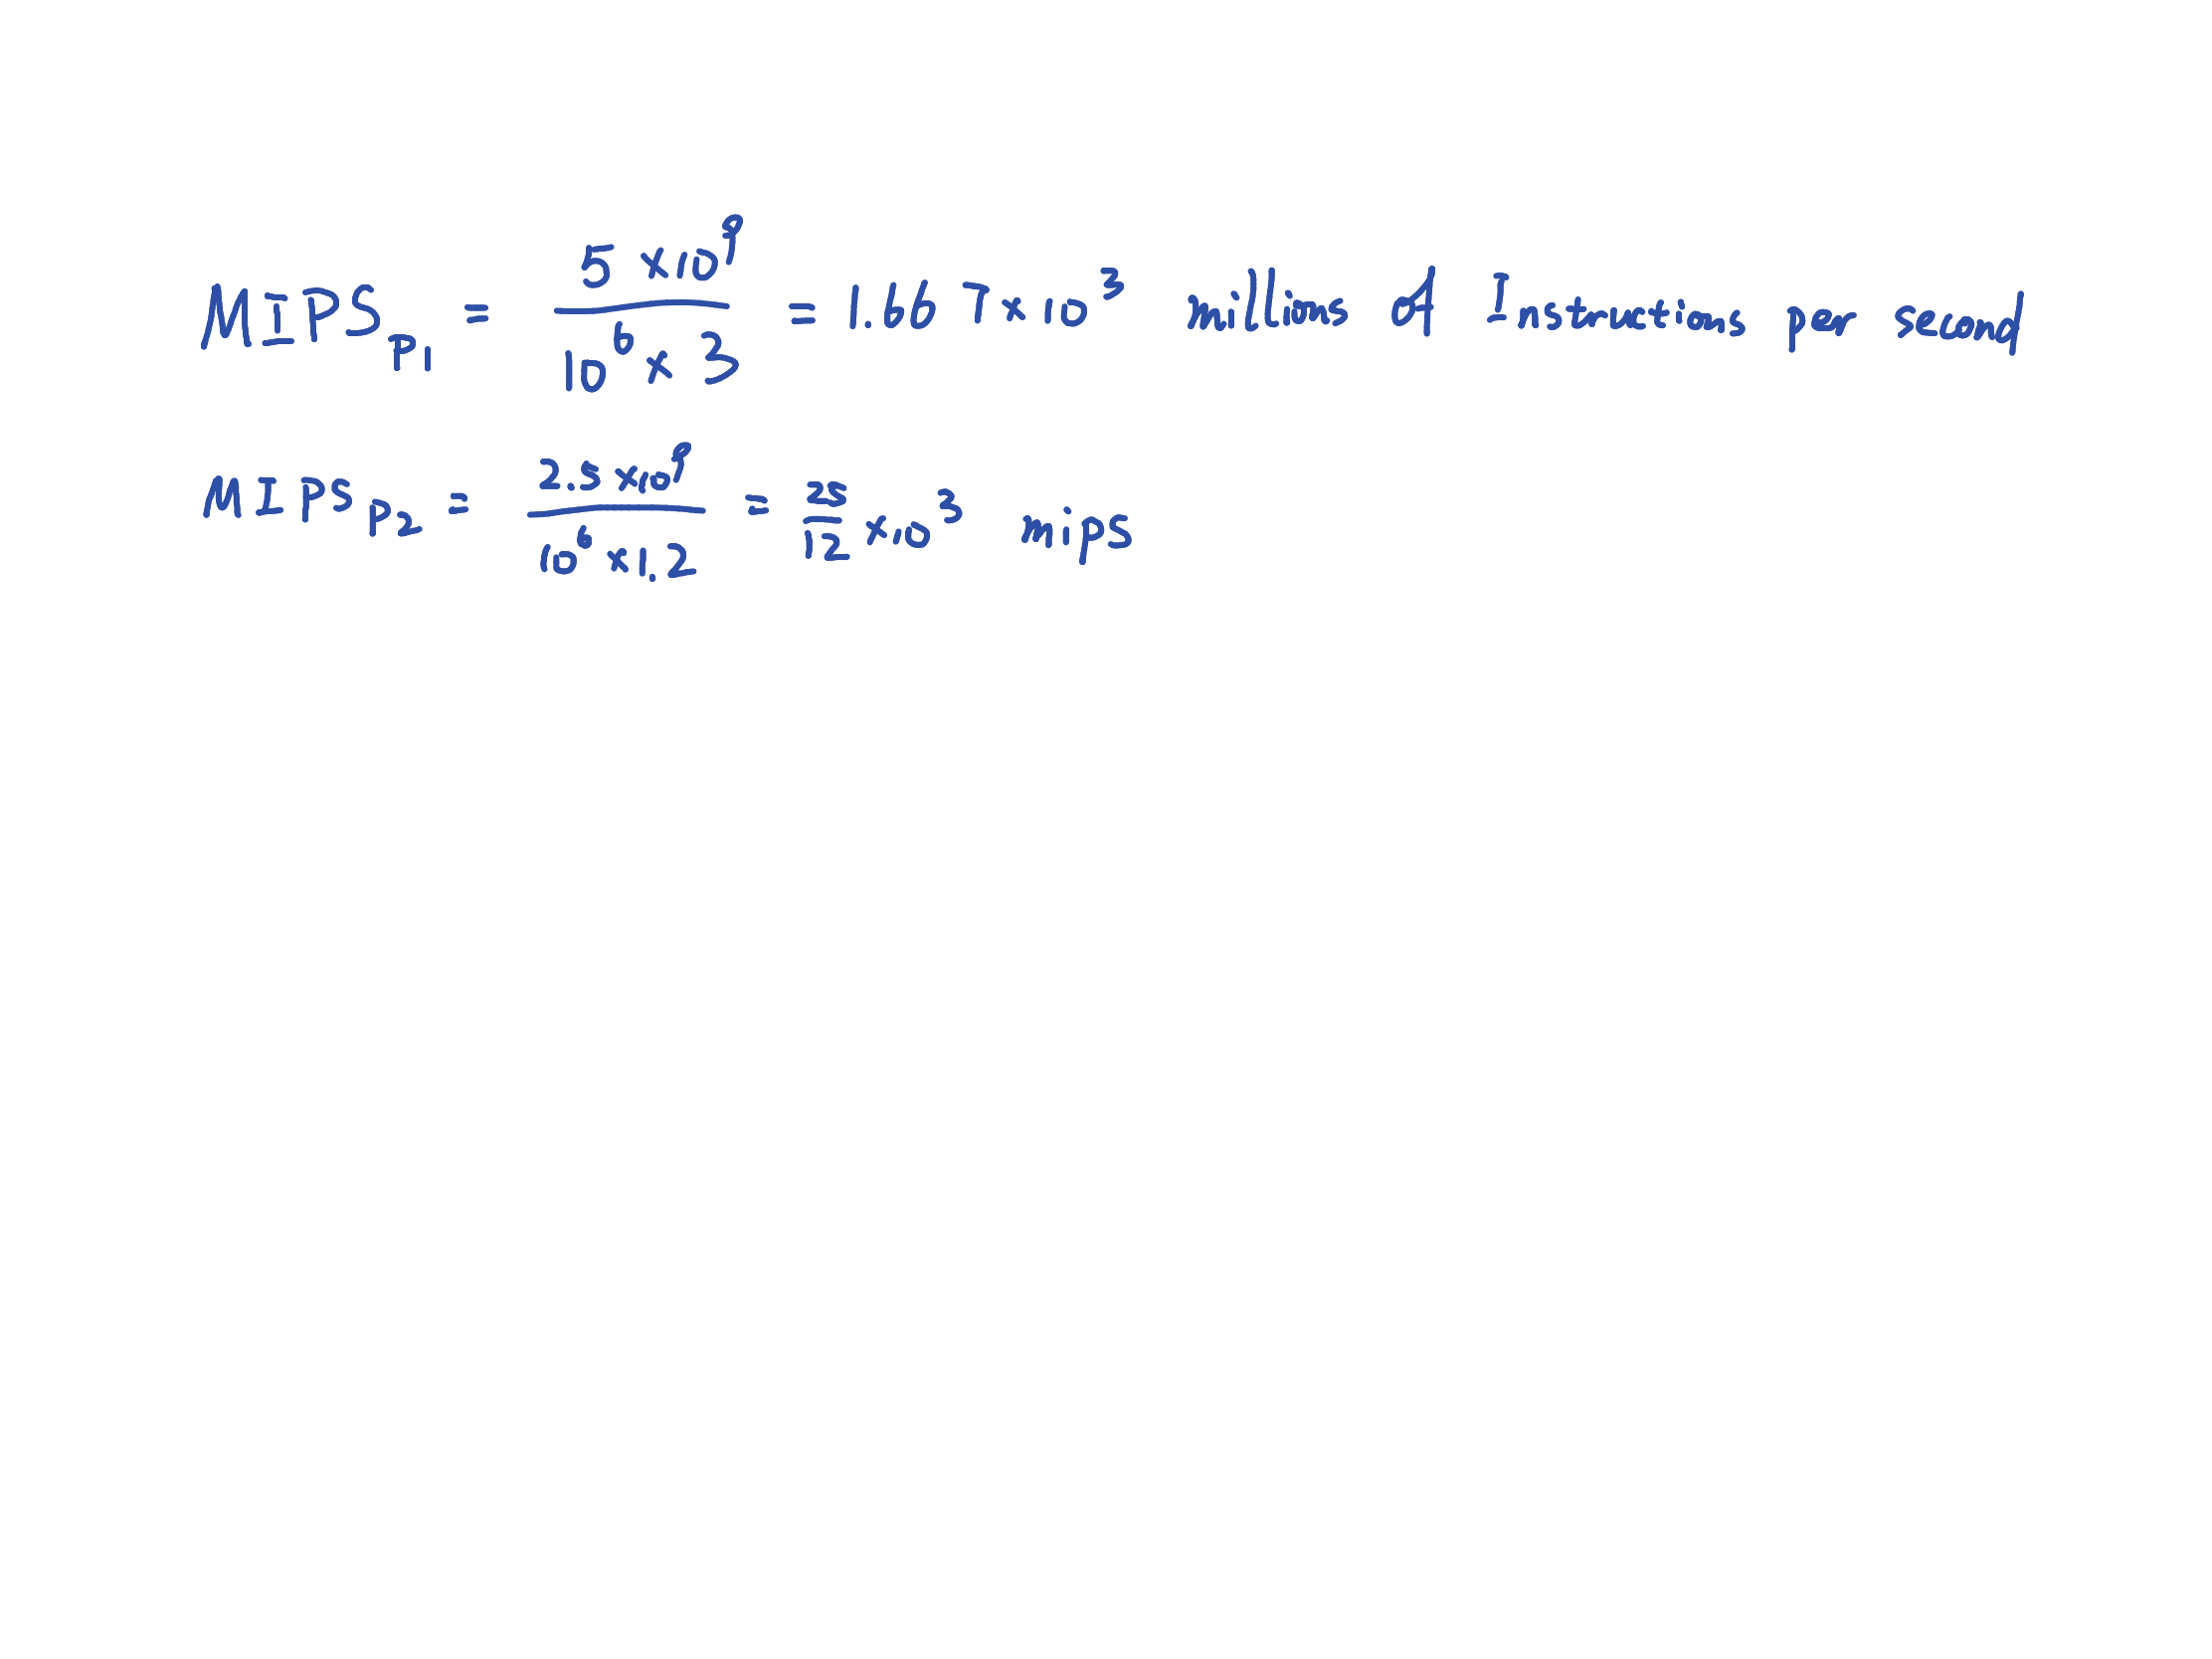 MIPS_P1 = 5 × 10^9 / 10^6 × 3 = 1.667 × 10^3 millions of Instructions per second
MIPS_P2 = 2.5 × 10^9 / 10^6 × 1.2 = 25/12 × 10^3 mips